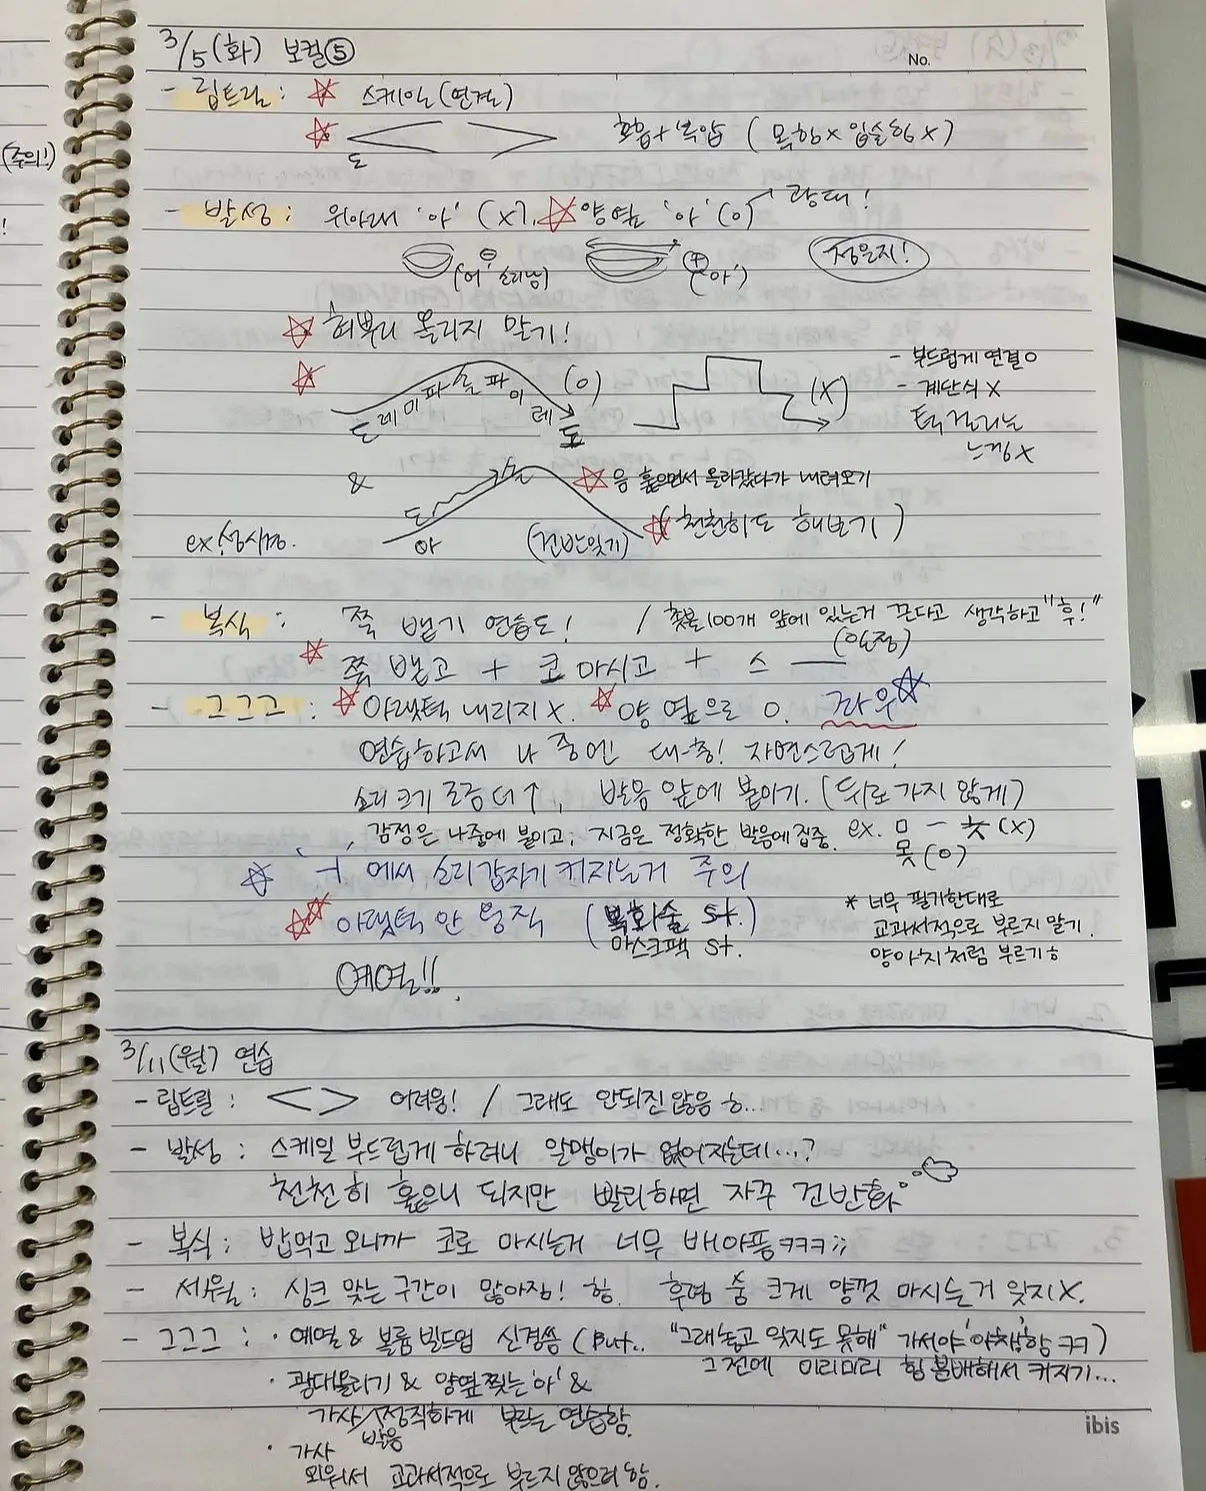 3/5(화) 보컬⑤
No.
- 립트릴 : ☆ 스케일(연결)
(주의!)
☆ 도 호흡+복압 ( 목힘x 입술힘 x )
- 발성 : 위아래 '아' (x), ☆ 양옆 '아' (o) 광대!
⊖ ('어' 소리남) ⊕ ('아') 정은지!
☆ 혀뿌리 올리지 말기!
☆ 도 레 미 파 솔 파 미 레 도 (o) (x)
- 부드럽게 연결o
- 계단식 x
턱 걸리는
느낌x
& 도 솔 ☆ 음 훑으면서 올라갔다가 내려오기
ex) 성시경. 아 (건반잊기) ☆ (천천히도 해보기)
- 복식 : 쭉 뱉기 연습도! / 촛불100개 앞에 있는거 끈다고 생각하고 "후!"
☆ 쭉 뱉고 + 코 마시고 + 스 ── (일정)
- 그그그 : ☆ 아랫턱 내리지 x. ☆ 양 옆으로 o. 좌우☆
연습하고서 나중엔 대-충! 자연스럽게!
소리 크기 조금 더↑, 발음 앞에 붙이기. (뒤로 가지 않게)
감정은 나중에 붙이고, 지금은 정확한 발음에 집중. ex. ㅁ ㅡ 옷 (x)
못 (o)
☆ 'ㅓ'에서 소리 갑자기 커지는거 주의
☆☆ 아랫턱 안 움직 (복화술 st.)
마스크팩 st.
* 너무 필기한대로
교과서적으로 부르지 말기.
양아치처럼 부르기ㅎ
예열!!
3/11(월) 연습
- 립트릴 : < > 어려움! / 그래도 안되진 않음 ㅎ...
- 발성 : 스케일 부드럽게 하려니 알맹이가 없어지는데...?
천천히 훑으니 되지만 빨리하면 자꾸 건반화
- 복식 : 밥먹고 오니까 코로 마시는거 너무 배아픔ㅋㅋㅋ;;
- 세월 : 싱크 맞는 구간이 많아짐! 후렴 숨 크게 양껏 마시는거 잊지X.
- 그그그 : · 예열 & 볼륨 빌드업 신경씀 (But.. "그래놓고 잊지도 못해" 가서야 '아차'함 ㅋㅋ)
그 전에 미리미리 힘 분배해서 커지기...
· 광대올리기 & 양옆 찢는 '아' &
가사/발음 정직하게 부르는 연습함.
· 가사
외워서 교과서적으로 부르지 않으려 함.
ibis